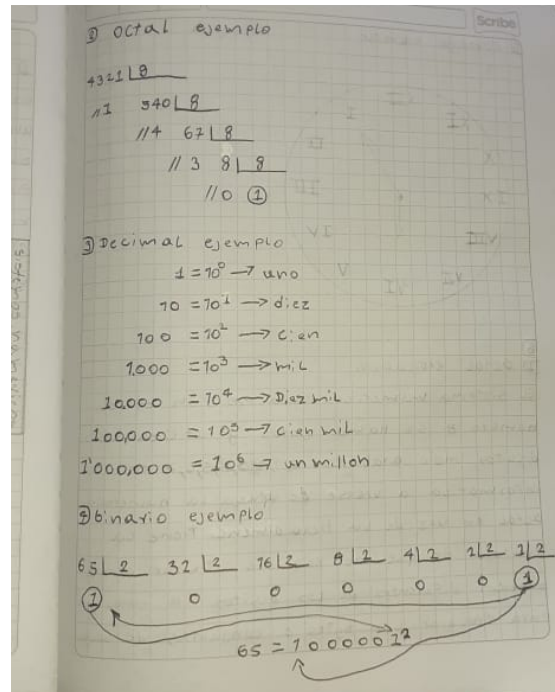 Scribe
② Octal ejemplo
4321 | 8
//1 540 | 8
//4 67 | 8
//3 8 | 8
//0 ①
③ Decimal ejemplo
1 = 10⁰ → uno
10 = 10¹ → diez
100 = 10² → cien
1.000 = 10³ → mil
10.000 = 10⁴ → Diez mil
100,000 = 10⁵ → cien mil
1'000,000 = 10⁶ → un millon
binario ejemplo
65 | 2 32 | 2 16 | 2 8 | 2 4 | 2 2 | 2 1 | 2
① 0 0 0 0 0 ①
65 = 1000001²